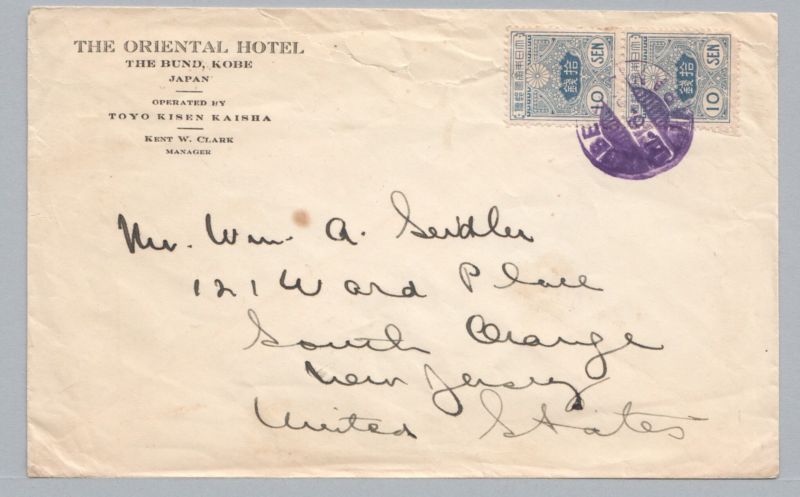 THE ORIENTAL HOTEL
THE BUND, KOBE
JAPAN
OPERATED BY
TOYO KISEN KAISHA
KENT W. CLARK
MANAGER
大日本帝國郵便
拾錢
10 SEN
大日本帝國郵便
拾錢
10 SEN
Mr. Wm. A. Seidler
121 Ward Place
South Orange
New Jersey
United States